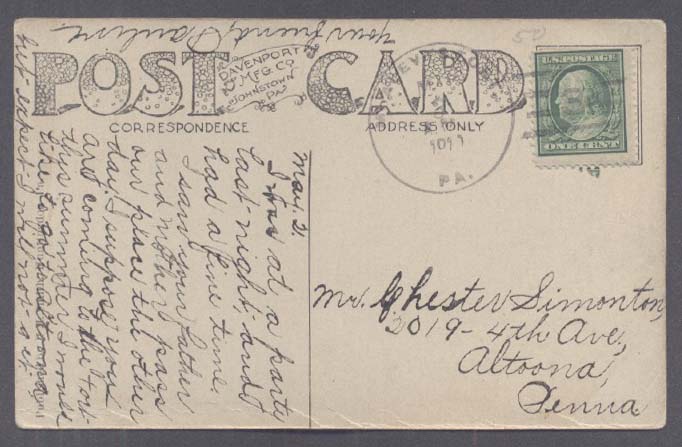 POST CARD
DAVENPORT
MFG. CO.
JOHNSTOWN
PA.
CORRESPONDENCE
ADDRESS ONLY
U.S. POSTAGE
ONE CENT
PA.
50
May. 2.
I was at a parte
last-night and
had a fine time.
I saw your father
and mother pass
our place the other
day. I suppose you
are coming to the
this summer I would
like to go to altoona
but expect I will not-get
your friend, Pauline
Mr. Chester Simonton,
2019-4th Ave,
Altoona,
Penna